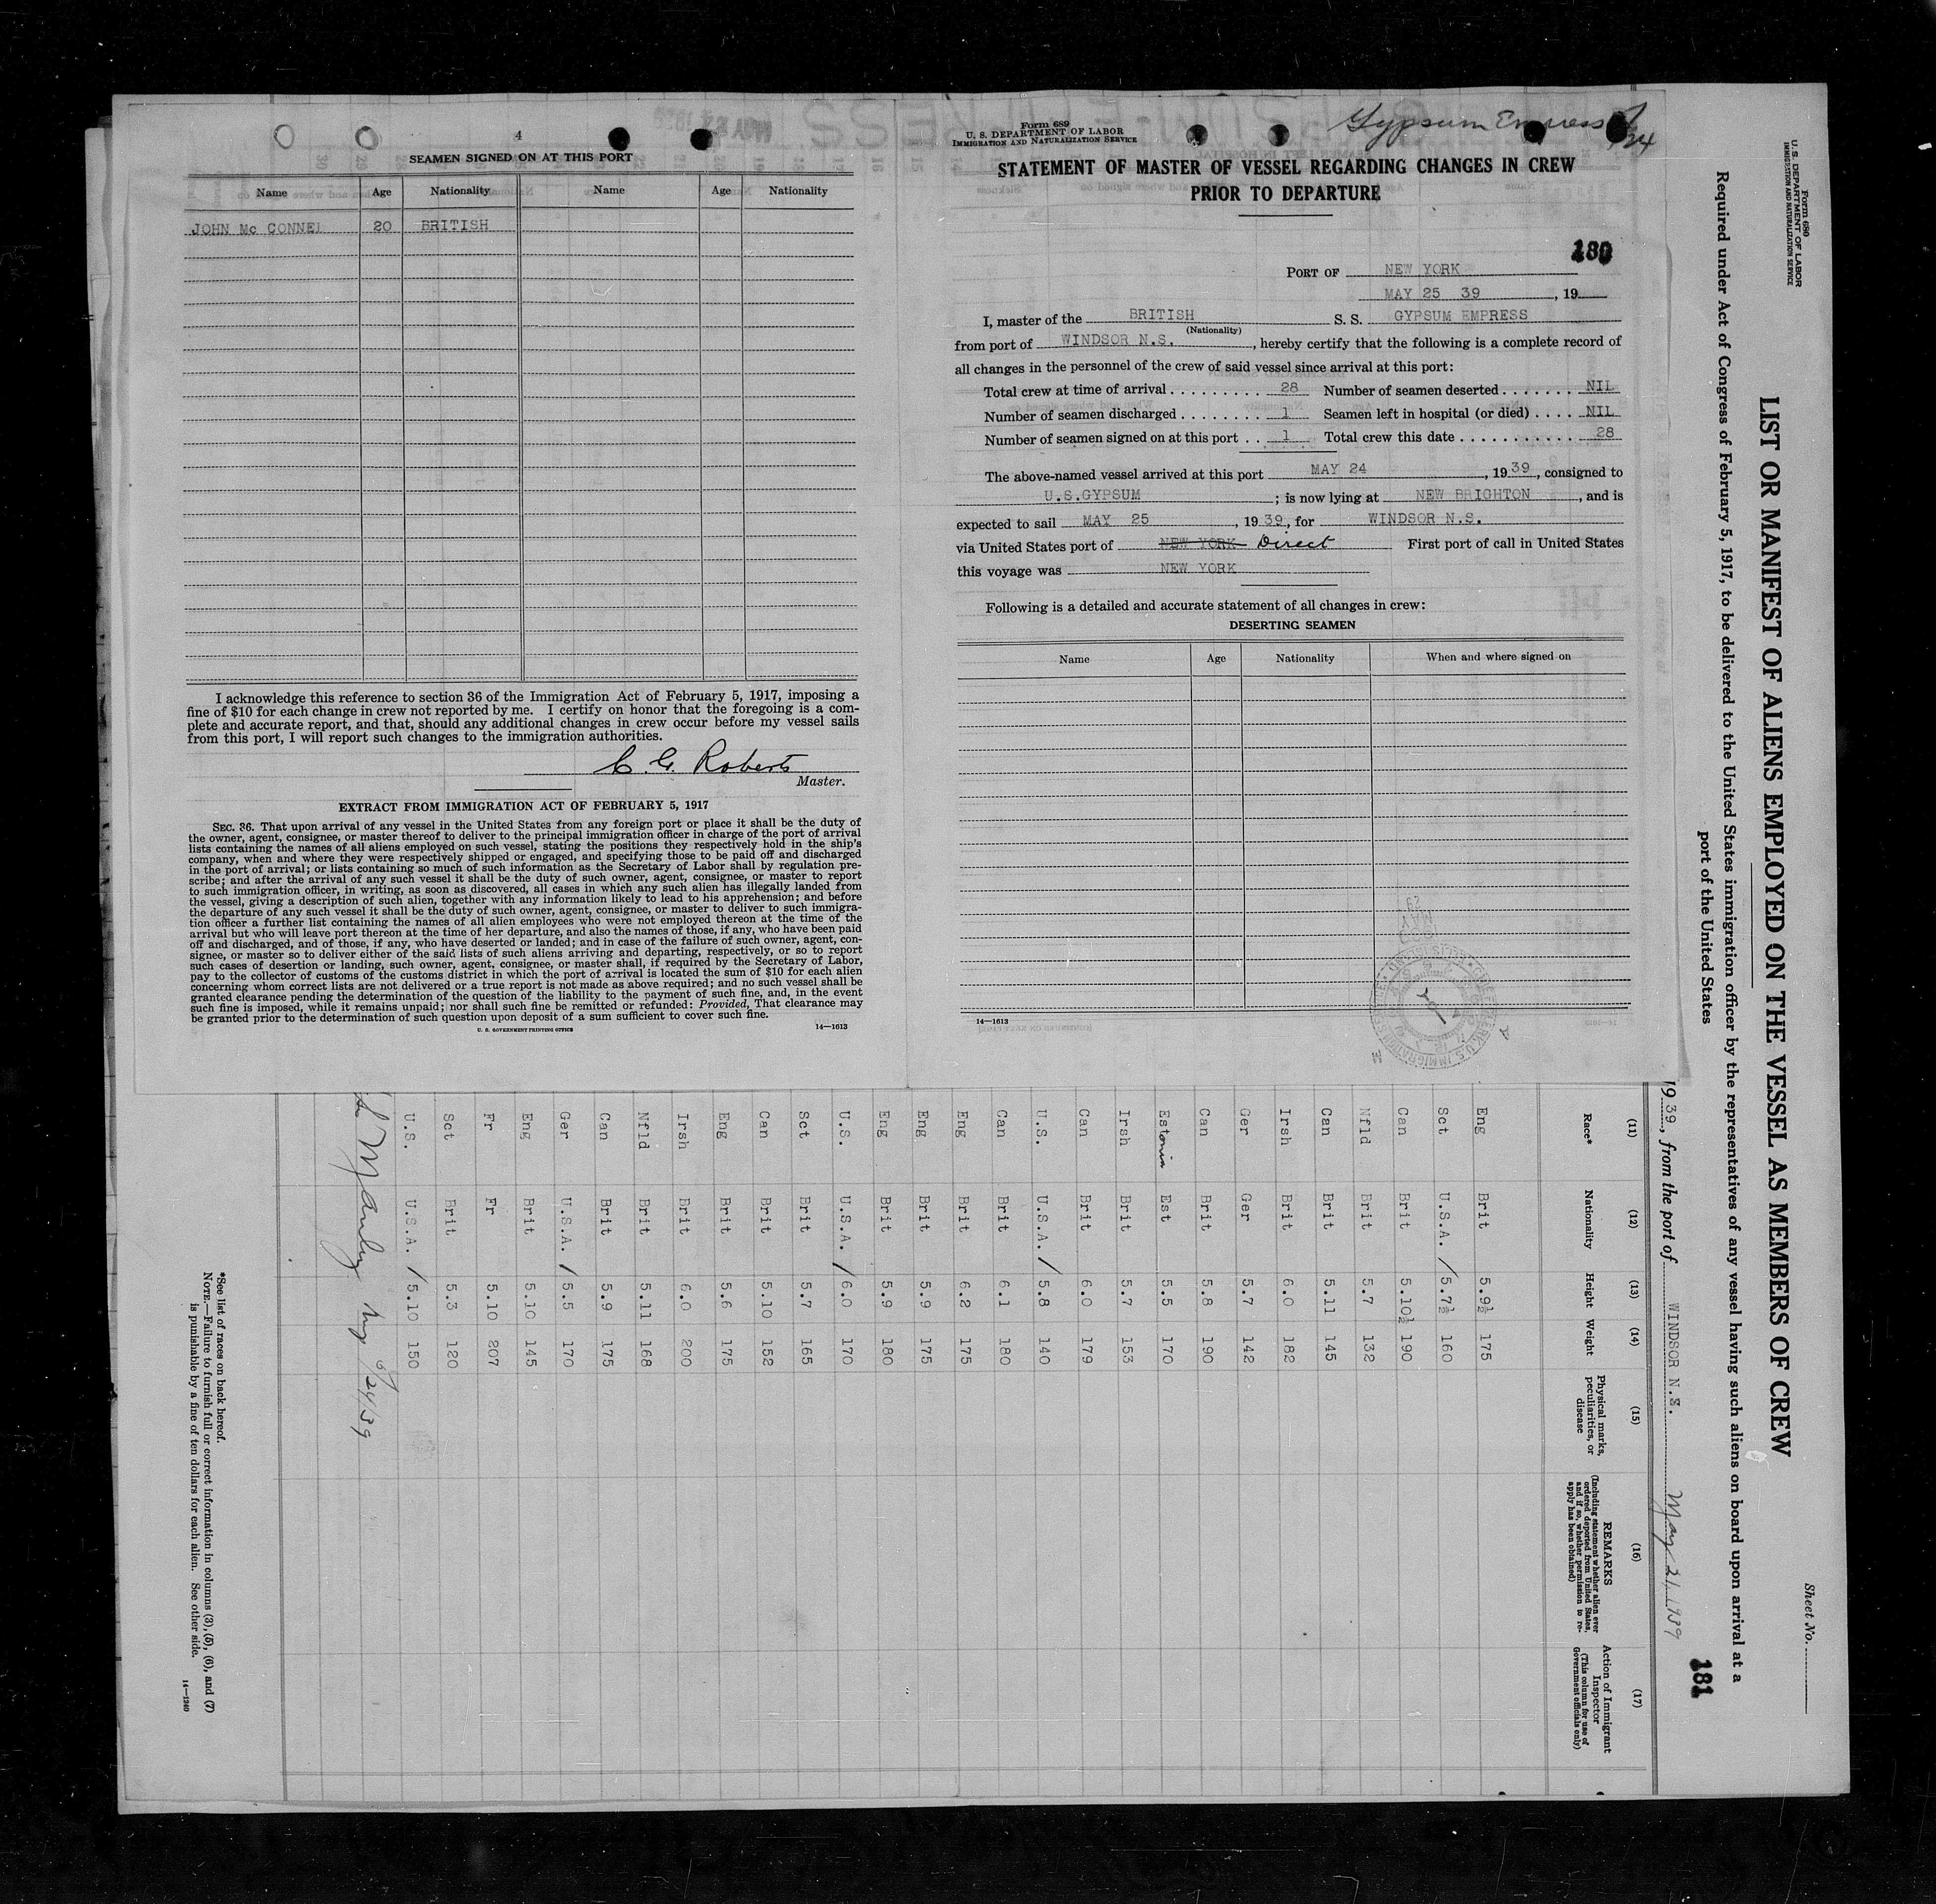 4
SEAMEN SIGNED ON AT THIS PORT
Name Age Nationality Name Age Nationality
JOHN Mc CONNEL 20 BRITISH
I acknowledge this reference to section 36 of the Immigration Act of February 5, 1917, imposing a
fine of $10 for each change in crew not reported by me. I certify on honor that the foregoing is a com-
plete and accurate report, and that, should any additional changes in crew occur before my vessel sails
from this port, I will report such changes to the immigration authorities.
C. G. Roberts
Master.
EXTRACT FROM IMMIGRATION ACT OF FEBRUARY 5, 1917
SEC. 36. That upon arrival of any vessel in the United States from any foreign port or place it shall be the duty of
the owner, agent, consignee, or master thereof to deliver to the principal immigration officer in charge of the port of arrival
lists containing the names of all aliens employed on such vessel, stating the positions they respectively hold in the ship's
company, when and where they were respectively shipped or engaged, and specifying those to be paid off and discharged
in the port of arrival; or lists containing so much of such information as the Secretary of Labor shall by regulation pre-
scribe; and after the arrival of any such vessel it shall be the duty of such owner, agent, consignee, or master to report
to such immigration officer, in writing, as soon as discovered, all cases in which any such alien has illegally landed from
the vessel, giving a description of such alien, together with any information likely to lead to his apprehension; and before
the departure of any such vessel it shall be the duty of such owner, agent, consignee, or master to deliver to such immigra-
tion officer a further list containing the names of all alien employees who were not employed thereon at the time of the
arrival but who will leave port thereon at the time of her departure, and also the names of those, if any, who have been paid
off and discharged, and of those, if any, who have deserted or landed; and in case of the failure of such owner, agent, con-
signee, or master so to deliver either of the said lists of such aliens arriving and departing, respectively, or so to report
such cases of desertion or landing, such owner, agent, consignee, or master shall, if required by the Secretary of Labor,
pay to the collector of customs of the customs district in which the port of arrival is located the sum of $10 for each alien
concerning whom correct lists are not delivered or a true report is not made as above required; and no such vessel shall be
granted clearance pending the determination of the question of the liability to the payment of such fine, and, in the event
such fine is imposed, while it remains unpaid; nor shall such fine be remitted or refunded: Provided, That clearance may
be granted prior to the determination of such question upon deposit of a sum sufficient to cover such fine.
U. S. GOVERNMENT PRINTING OFFICE 14—1613
Form 689
U. S. DEPARTMENT OF LABOR
IMMIGRATION AND NATURALIZATION SERVICE
Gypsum Empress
STATEMENT OF MASTER OF VESSEL REGARDING CHANGES IN CREW
PRIOR TO DEPARTURE
180
PORT OF NEW YORK
MAY 25 39, 19
I, master of the BRITISH S. S. GYPSUM EMPRESS
(Nationality)
from port of WINDSOR N.S., hereby certify that the following is a complete record of
all changes in the personnel of the crew of said vessel since arrival at this port:
Total crew at time of arrival 28 Number of seamen deserted NIL
Number of seamen discharged 1 Seamen left in hospital (or died) NIL
Number of seamen signed on at this port 1 Total crew this date 28
The above-named vessel arrived at this port MAY 24, 1939, consigned to
U.S.GYPSUM; is now lying at NEW BRIGHTON, and is
expected to sail MAY 25, 1939, for WINDSOR N.S.
via United States port of NEW YORK Direct First port of call in United States
this voyage was NEW YORK
Following is a detailed and accurate statement of all changes in crew:
DESERTING SEAMEN
Name Age Nationality When and where signed on
14—1613
Form 680
U. S. DEPARTMENT OF LABOR
IMMIGRATION AND NATURALIZATION SERVICE
Sheet No.
LIST OR MANIFEST OF ALIENS EMPLOYED ON THE VESSEL AS MEMBERS OF CREW
Required under Act of Congress of February 5, 1917, to be delivered to the United States immigration officer by the representatives of any vessel having such aliens on board upon arrival at a
port of the United States
181
1939, from the port of WINDSOR N.S. May 21, 1939
(11) (12) (13) (14) (15) (16) (17)
Race* Nationality Height Weight Physical marks, peculiarities, or disease REMARKS (Including statement whether alien ever ordered deported from United States, and if so, whether permission to re-apply has been obtained) Action of Immigrant Inspector (This column for use of Government officials only)
Eng Brit 5.9½ 175
Sct U.S.A. / 5.7½ 160
Can Brit 5.10½ 190
Nfld Brit 5.7 132
Can Brit 5.11 145
Irsh Brit 6.0 182
Ger Ger 5.7 142
Can Brit 5.8 190
Estonia Est 5.5 170
Irsh Brit 5.7 153
Can Brit 6.0 179
U.S. U.S.A. / 5.8 140
Can Brit 6.1 180
Eng Brit 6.2 175
Eng Brit 5.9 175
Eng Brit 5.9 180
U.S. U.S.A. / 6.0 170
Sct Brit 5.7 165
Can Brit 5.10 152
Eng Brit 5.6 175
Irsh Brit 6.0 200
Nfld Brit 5.11 168
Can Brit 5.9 175
Ger U.S.A. / 5.5 170
Eng Brit 5.10 145
Fr Fr 5.10 207
Sct Brit 5.3 120
U.S. U.S.A. / 5.10 150
*See list of races on back hereof.
NOTE.—Failure to furnish full or correct information in columns (3), (5), (6), and (7)
is punishable by a fine of ten dollars for each alien. See other side.
14—1240